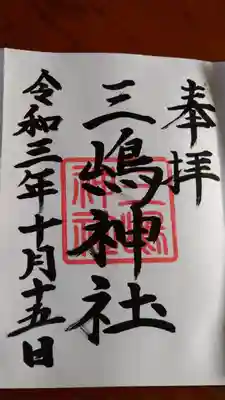 奉拝
三嶋神社
令和三年十月十五日